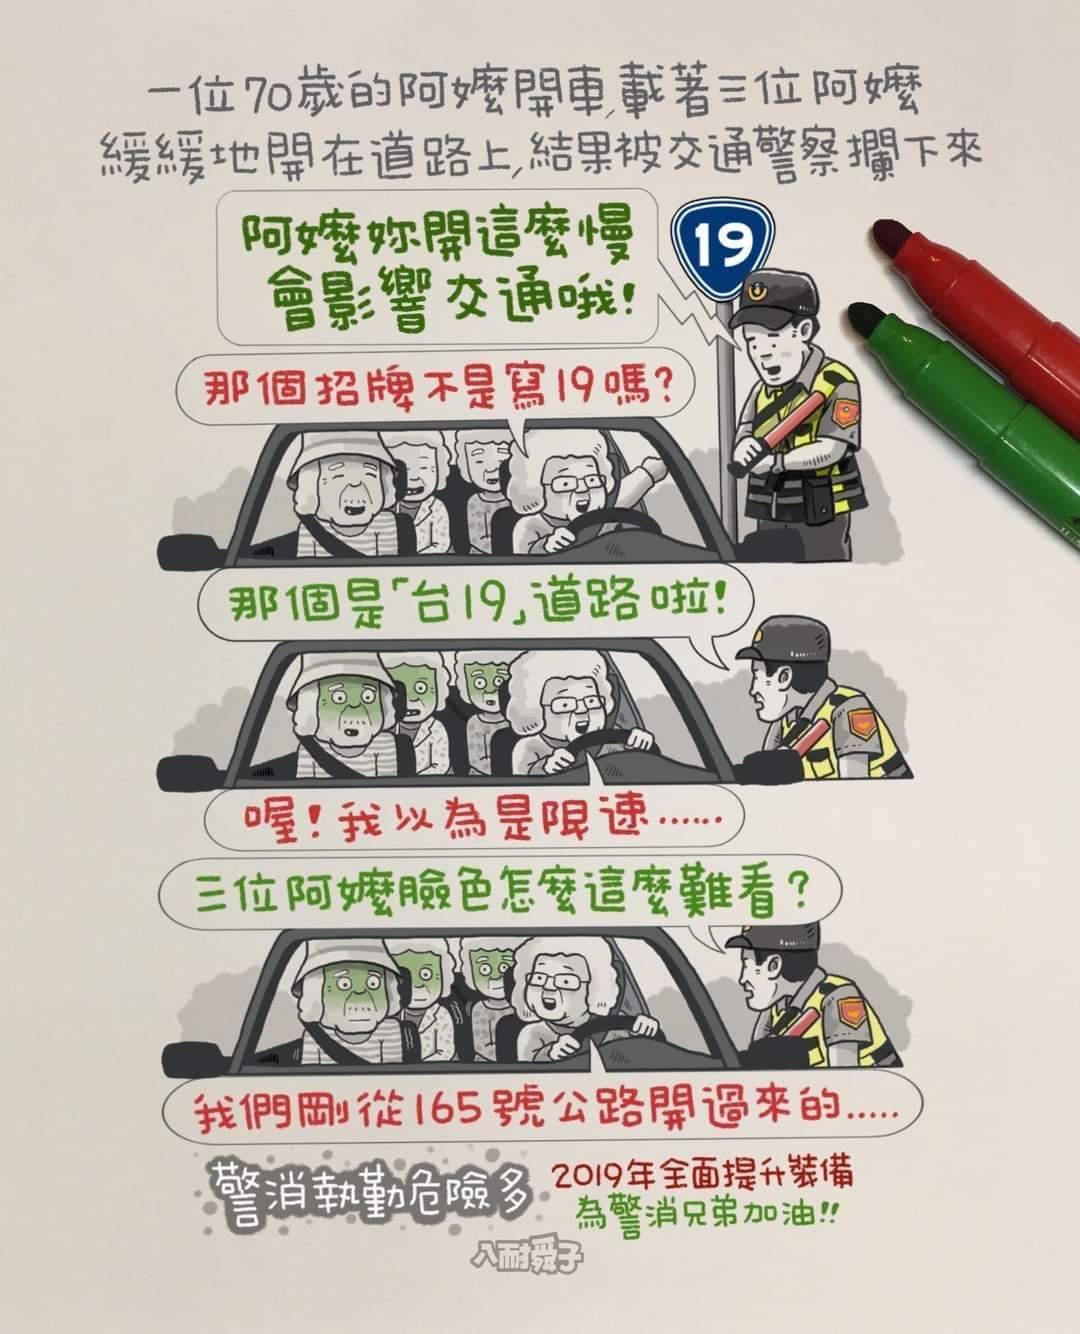 一位70歲的阿嬤開車,載著三位阿嬤
緩緩地開在道路上,結果被交通警察攔下來
阿嬤妳開這麼慢
會影響交通哦!
19
那個招牌不是寫19嗎?
那個是「台19」道路啦!
喔!我以為是限速......
三位阿嬤臉色怎麼這麼難看?
我們剛從165號公路開過來的.....
警消執勤危險多
2019年全面提升裝備
為警消兄弟加油!!
八耐舜子